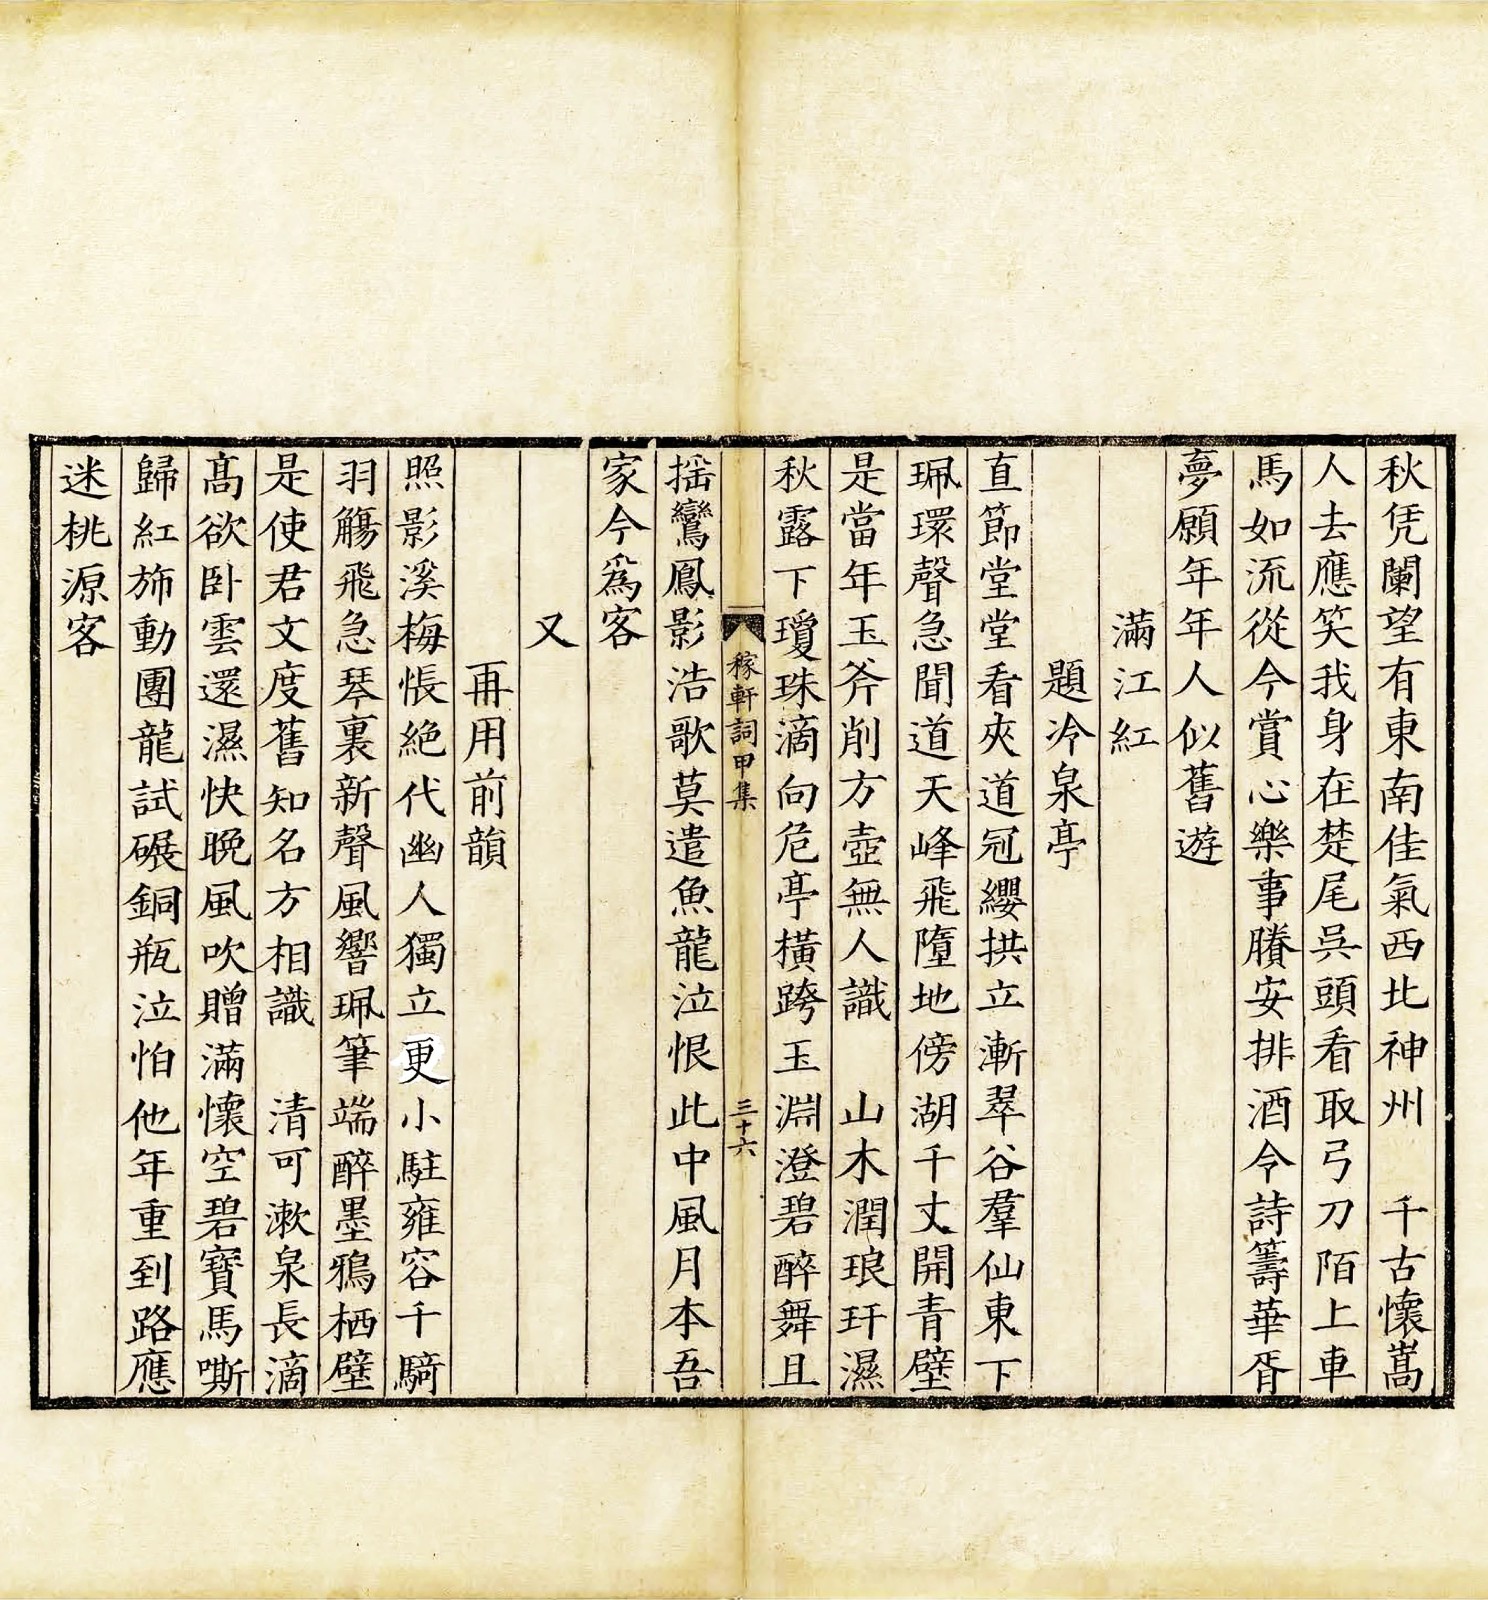 秋凭闌望有東南佳氣西北神州　千古懷嵩
人去應笑我身在楚尾呉頭看取弓刀陌上車
馬如流從今賞心樂事賸安排酒令詩籌華胥
夢願年年人似舊遊
滿江紅
題冷泉亭
直節堂堂看夾道冠纓拱立漸翠谷羣仙東下
珮環聲急聞道天峰飛墮地傍湖千丈開青壁
是當年玉斧削方壺無人識　山木潤琅玕濕
秋露下瓊珠滴向危亭橫跨玉淵澄碧醉舞且
稼軒詞甲集　三十六
揺鸞鳳影浩歌莫遣魚龍泣恨此中風月本吾
家今爲客
又
再用前韻
照影溪梅悵絶代幽人獨立更小駐雍容千騎
羽觴飛急琴裏新聲風響珮筆端醉墨鴉栖壁
是使君文度舊知名方相識　清可漱泉長滴
髙欲卧雲還濕快晚風吹贈滿懷空碧寶馬嘶
歸紅斾動團龍試碾銅瓶泣怕他年重到路應
迷桃源客